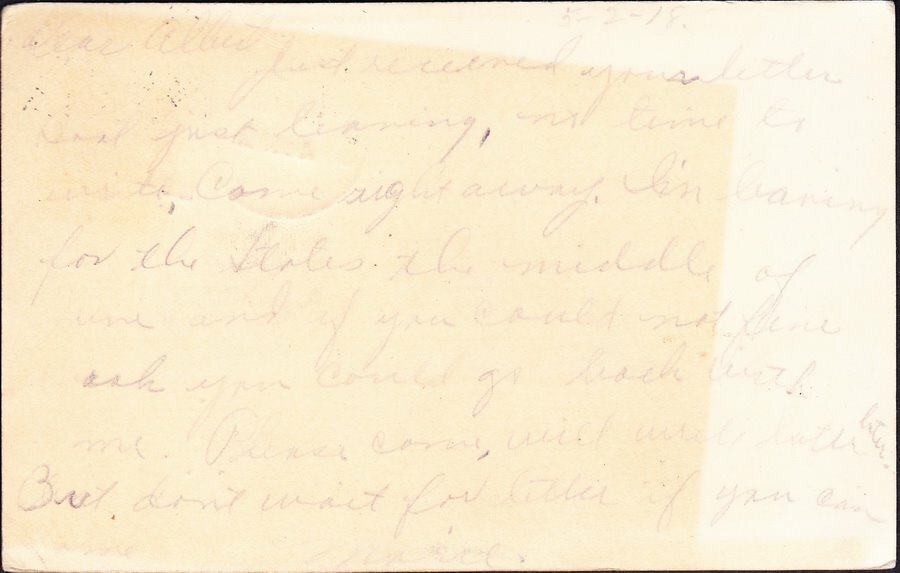 5-2-18.
Dear Albert
Just received your letter
just leaving, no time to
write, Come right away. I'm leaving
for the States the middle of
and if you could not fine
you could go back with
me. Please come, will write letter later.
But don't wait for letter if you can
come